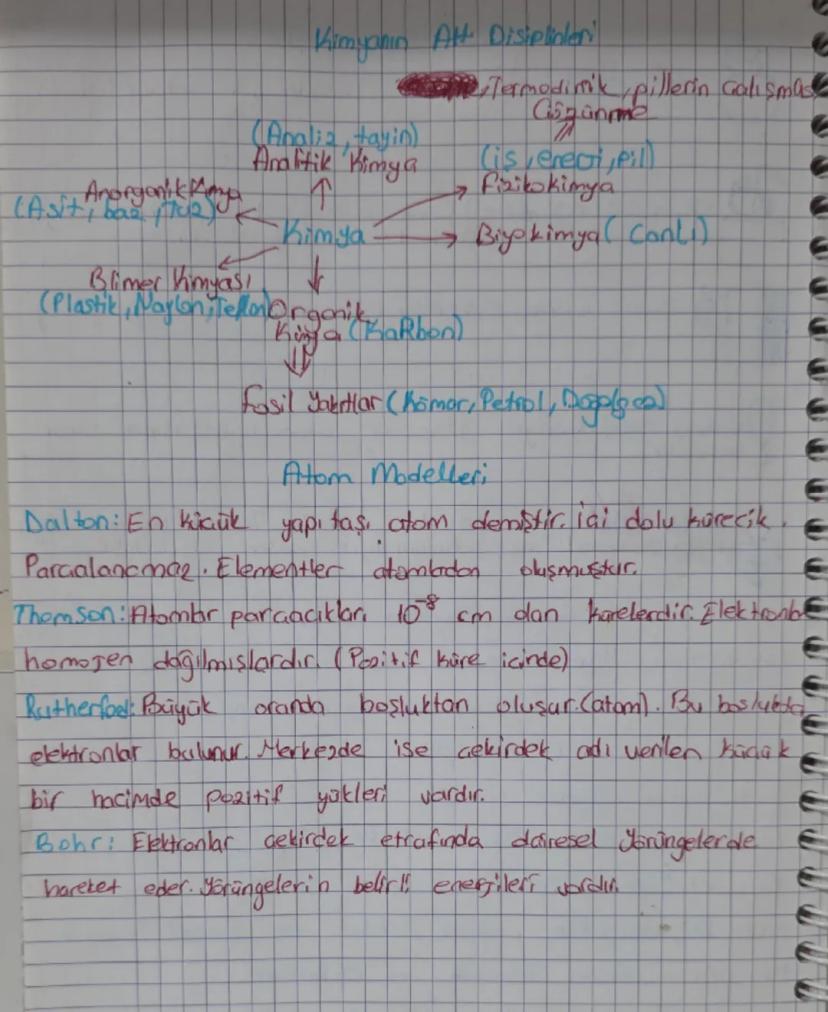 Kimyanın Alt Disiplinleri
,Termodimik, pillerin calışması
Cözünme
(Analiz, tayin)
Analitik Kimya
(is, enerji, pil)
Fizikokimya
Anorganik Kimya
(Asit, baz, tuz)
Kimya
Biyokimya (Canlı)
Blimer Kimyası
(Plastik, Naylon, Teflon)
Organik
Kimya (KaRbon)
Fosil Yakıtlar (Kömür, Petrol, Doğalgaz)
Atom Modelleri
Dalton: En küçük yapı taşı atom demiştir. içi dolu kürecik.
Parçalanamaz. Elementler atomlardan oluşmuştur.
Thomson: Atomlar parçacıkları 10⁻⁸ cm olan kürelerdir. Elektronlar
homojen dağılmışlardır. (Pozitif küre içinde)
Rutherford: Büyük oranda boşluktan oluşur. (atom). Bu boşlukta
elektronlar bulunur. Merkezde ise çekirdek adı verilen küçük
bir hacimde pozitif yükleri vardır.
Bohr: Elektronlar çekirdek etrafında dairesel yörüngelerde
hareket eder. Yörüngelerin belirli enerjileri vardır.